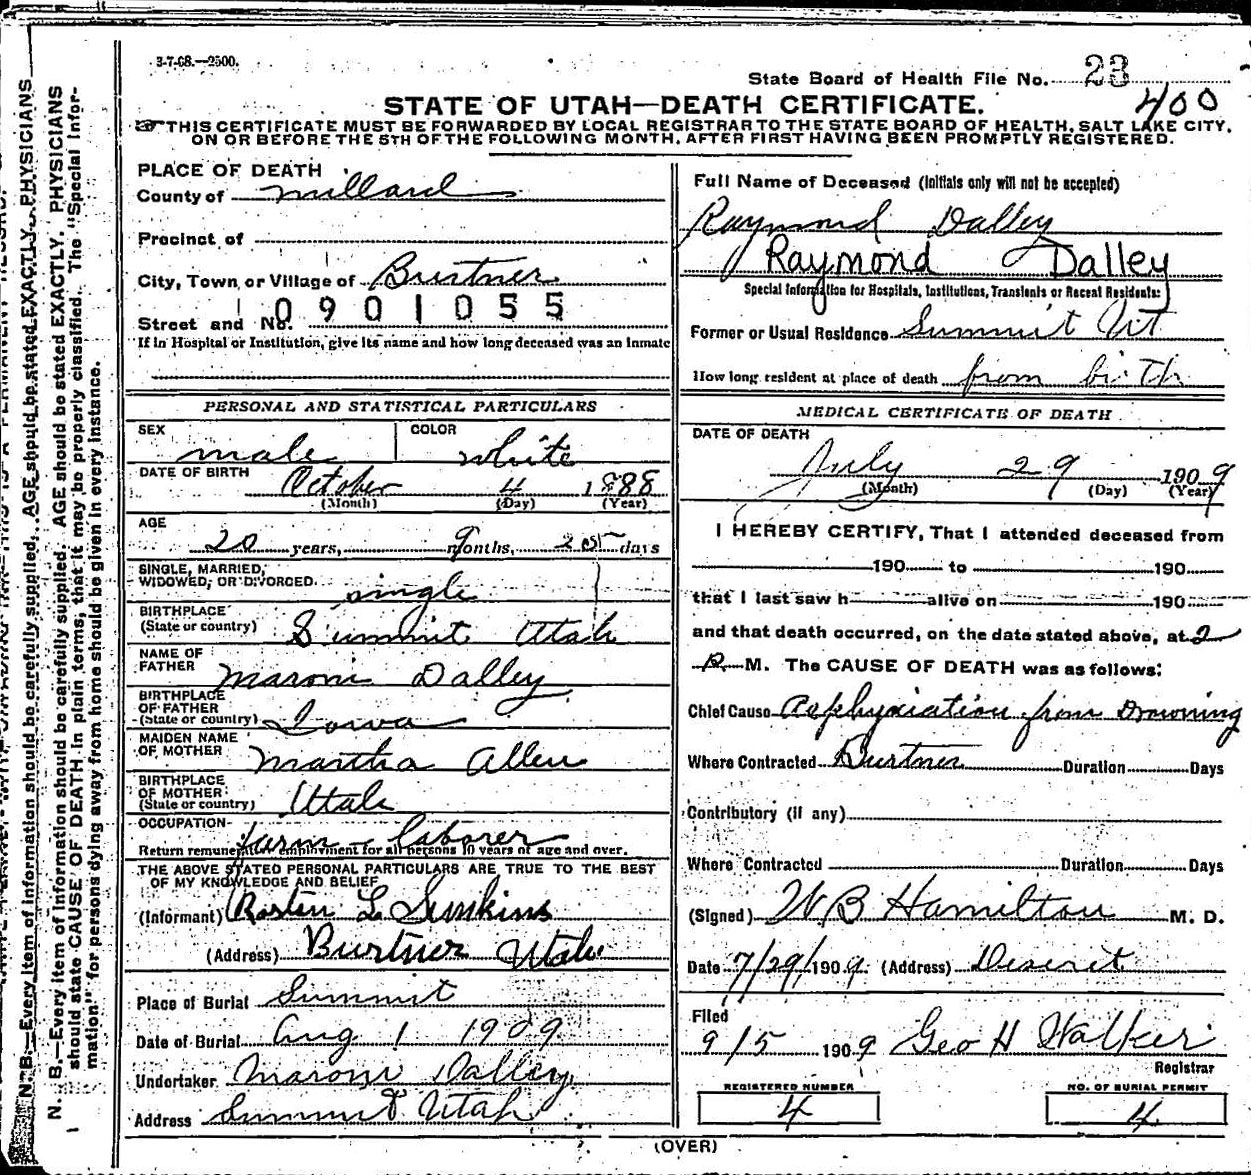 3-7-08.—2500.
State Board of Health File No. 23
400
STATE OF UTAH—DEATH CERTIFICATE.
THIS CERTIFICATE MUST BE FORWARDED BY LOCAL REGISTRAR TO THE STATE BOARD OF HEALTH, SALT LAKE CITY,
ON OR BEFORE THE 5TH OF THE FOLLOWING MONTH, AFTER FIRST HAVING BEEN PROMPTLY REGISTERED.
PLACE OF DEATH
County of Millard
Precinct of
City, Town or Village of Burtner
0901055
Street and No.
If in Hospital or Institution, give its name and how long deceased was an inmate
PERSONAL AND STATISTICAL PARTICULARS
SEX male
COLOR white
DATE OF BIRTH October 4 1888
(Month) (Day) (Year)
AGE
20 years, 9 months, 25 days
SINGLE, MARRIED,
WIDOWED, OR DIVORCED. single
BIRTHPLACE
(State or country) Summit Utah
NAME OF
FATHER Maroni Dalley
BIRTHPLACE
OF FATHER
(State or country) Iowa
MAIDEN NAME
OF MOTHER Martha Allen
BIRTHPLACE
OF MOTHER
(State or country) Utah
OCCUPATION farm laborer
Return remunerative employment for all persons 10 years of age and over.
THE ABOVE STATED PERSONAL PARTICULARS ARE TRUE TO THE BEST
OF MY KNOWLEDGE AND BELIEF
(Informant) L Simkins
(Address) Burtner Utah
Place of Burial Summit
Date of Burial Aug 1 1909
Undertaker Maroni Dalley
Address Summit Utah
Full Name of Deceased (Initials only will not be accepted)
Raymond Dalley
Raymond Dalley
Special Information for Hospitals, Institutions, Transients or Recent Residents:
Former or Usual Residence Summit Ut
How long resident at place of death from birth
MEDICAL CERTIFICATE OF DEATH
DATE OF DEATH
July 29 1909
(Month) (Day) (Year)
I HEREBY CERTIFY, That I attended deceased from
190 to 190
that I last saw h alive on 190
and that death occurred, on the date stated above, at 2
P. M. The CAUSE OF DEATH was as follows:
Chief Cause Asphyxiation from Drowning
Where Contracted Burtner Duration Days
Contributory (if any)
Where Contracted Duration Days
(Signed) W B Hamilton M. D.
Date 7/29/1909. (Address) Deseret
Filed
9/5 1909 Geo H Walker
Registrar
REGISTERED NUMBER
4
NO. OF BURIAL PERMIT
4
(OVER)
N. B.—Every item of information should be carefully supplied. AGE should be stated EXACTLY. PHYSICIANS
N. B.—Every item of information should be carefully supplied. AGE should be stated EXACTLY. PHYSICIANS
should state CAUSE OF DEATH in plain terms, that it may be properly classified. The "Special Infor-
mation" for persons dying away from home should be given in every instance.